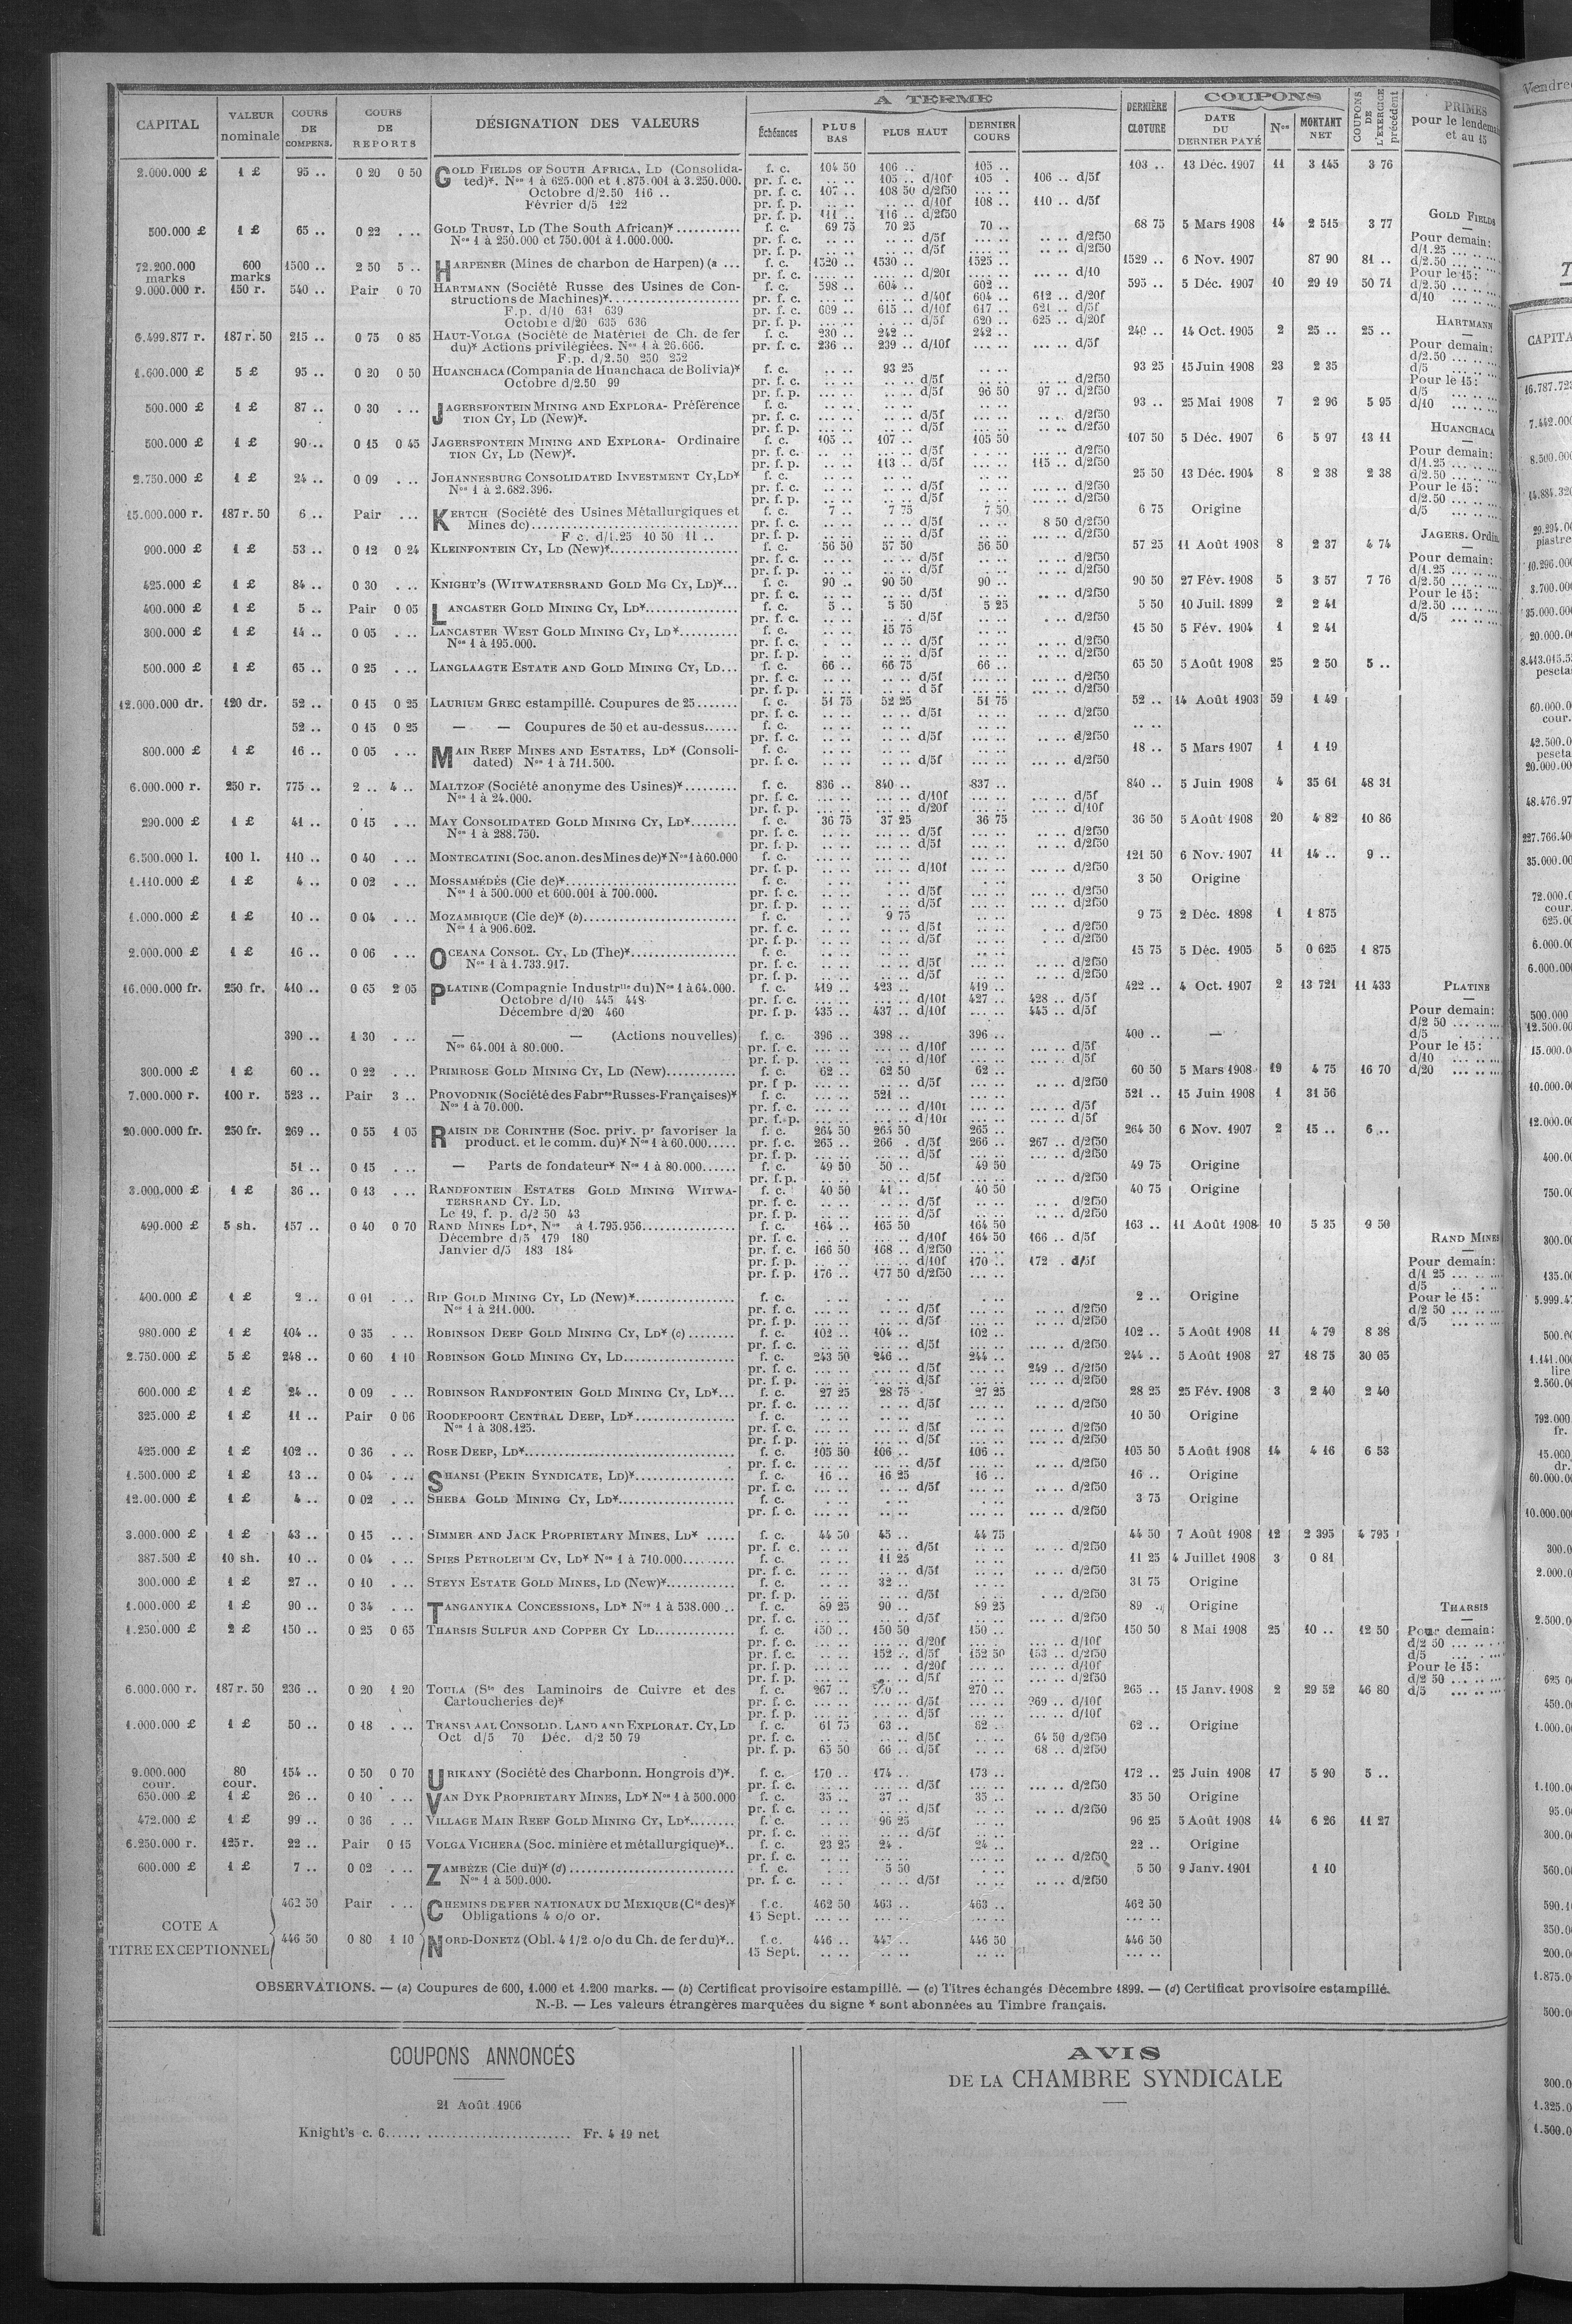 CAPITAL | VALEUR nominale | COURS DE COMPENS. | COURS DE REPORTS | DÉSIGNATION DES VALEURS | A TERME | DERNIÈRE CLOTURE | COUPONS | COUPONS DE L'EXERCICE précédent | PRIMES pour le lendemain et au 15
Échéances | PLUS BAS | PLUS HAUT | DERNIER COURS | DATE DU DERNIER PAYÉ | Nos | MONTANT NET
2.000.000 £ 1 £ 95 .. 0 20 0 50 GOLD FIELDS OF SOUTH AFRICA, LD (Consolida- f. c. 104 50 106 .. 105 .. 103 .. 13 Déc. 1907 11 3 145 3 76
ted)*. Nos 1 à 625.000 et 1.875.001 à 3.250.000. pr. f. c. .. .. 105 .. d/10f 105 . 106 .. d/5f
Octobre d/2.50 116 .. pr. f. c. 107 .. 108 50 d/2f50 .. ..
Février d/5 122 pr. f. p. .. .. .. .. d/10f 108 .. 110 .. d/5f
pr. f. p. 111 .. 116 .. d/2f50
500.000 £ 1 £ 65 .. 0 22 . .. GOLD TRUST, LD (The South African)* f. c. 69 75 70 25 70 .. 68 75 5 Mars 1908 14 2 515 3 77
Nos 1 à 250.000 et 750.001 à 1.000.000. pr. f. c. .. .. .. .. d/5f .. .. .. .. d/2f50
pr. f. p. .. .. .. .. d/5f .. .. .. .. d/2f50
72.200.000 marks 600 marks 1500 .. 2 50 5 .. HARPENER (Mines de charbon de Harpen) (a ... f. c. 1520 .. 1530 .. 1525 .. 1529 .. 6 Nov. 1907 87 90 81 ..
pr. f. c. .... .. .... .. d/20f .... .. .... .. d/10
9.000.000 r. 150 r. 540 .. Pair 0 70 HARTMANN (Société Russe des Usines de Con- f. c. 598 .. 604 .. 602 .. 595 .. 5 Déc. 1907 10 29 19 50 71
structions de Machines)* pr. f. c. ... .. ... .. d/40f 604 .. 612 .. d/20f
F.p. d/10 631 639 pr. f. c. 609 .. 615 .. d/10f 617 .. 621 .. d/5f
Octobre d/20 635 636 pr. f. p. ... .. ... .. d/5f 620 .. 625 .. d/20f
6.499.877 r. 187 r. 50 215 .. 0 75 0 85 HAUT-VOLGA (Société de Matériel de Ch. de fer f. c. 230 .. 242 .. 242 .. 240 .. 14 Oct. 1905 2 25 .. 25 ..
du)* Actions privilégiées. Nos 1 à 26.666. pr. f. c. 236 .. 239 .. d/10f ... .. ... .. d/5f
F.p. d/2.50 250 252
1.600.000 £ 5 £ 95 .. 0 20 0 50 HUANCHACA (Compania de Huanchaca de Bolivia)* f. c. .. .. 93 25 .. .. 93 25 15 Juin 1908 23 2 35
Octobre d/2.50 99 pr. f. c. .. .. .. .. d/5f .. .. .. .. d/2f50
pr. f. p. .. .. .. .. d/5f 96 50 97 .. d/2f50
500.000 £ 1 £ 87 .. 0 30 . .. JAGERSFONTEIN MINING AND EXPLORA- Préférence f. c. .. .. .. .. .. .. 93 .. 25 Mai 1908 7 2 96 5 95
TION CY, LD (New)*. pr. f. c. .. .. .. .. d/5f .. .. .. .. d/2f50
pr. f. p. .. .. .. .. d/5f .. .. .. .. d/2f50
500.000 £ 1 £ 90 .. 0 15 0 45 JAGERSFONTEIN MINING AND EXPLORA- Ordinaire f. c. 105 .. 107 .. 105 50 107 50 5 Déc. 1907 6 5 97 13 11
TION CY, LD (New)*. pr. f. c. .. .. ... .. d/5f ... .. ... .. d/2f50
pr. f. p. .. .. 113 .. d/5f ... .. 115 .. d/2f50
2.750.000 £ 1 £ 24 .. 0 09 . .. JOHANNESBURG CONSOLIDATED INVESTMENT CY, LD* f. c. .. .. .. .. .. .. 25 50 13 Déc. 1904 8 2 38 2 38
Nos 1 à 2.682.396. pr. f. c. .. .. .. .. d/5f .. .. .. .. d/2f50
pr. f. p. .. .. .. .. d/5f .. .. .. .. d/2f50
15.000.000 r. 187 r. 50 6 .. Pair . .. KERTCH (Société des Usines Métallurgiques et f. c. 7 .. 7 75 7 50 6 75 Origine
Mines de) pr. f. c. .. .. .. .. d/5f .. .. 8 50 d/2f50
F c. d/1.25 10 50 11 .. pr. f. p. .. .. .. .. d/5f .. .. .. .. d/2f50
900.000 £ 1 £ 53 .. 0 12 0 24 KLEINFONTEIN CY, LD (New)* f. c. 56 50 57 50 56 50 57 25 11 Août 1908 8 2 37 4 74
pr. f. c. .. .. .. .. d/5f .. .. .. .. d/2f50
pr. f. p. .. .. .. .. d/5f .. .. .. .. d/2f50
425.000 £ 1 £ 84 .. 0 30 . .. KNIGHT'S (WITWATERSRAND GOLD MG CY, LD)* f. c. 90 .. 90 50 90 .. 90 50 27 Fév. 1908 5 3 57 7 76
pr. f. c. .. .. .. .. d/5f .. .. .. .. d/2f50
400.000 £ 1 £ 5 .. Pair 0 05 LANCASTER GOLD MINING CY, LD* f. c. 5 .. 5 50 5 25 5 50 10 Juil. 1899 2 2 41
pr. f. c. .. .. .. .. d/5f .. .. . .. d/2f50
300.000 £ 1 £ 14 .. 0 05 . .. LANCASTER WEST GOLD MINING CY, LD* f. c. .. .. 15 75 .. .. 15 50 5 Fév. 1904 1 2 41
Nos 1 à 195.000. pr. f. c. .. .. .. .. d/5f .. .. .. .. d/2f50
pr. f. p. .. .. .. .. d/5f .. .. .. .. d/2f50
500.000 £ 1 £ 65 .. 0 25 . .. LANGLAAGTE ESTATE AND GOLD MINING CY, LD f. c. 66 .. 66 75 66 .. 65 50 5 Août 1908 25 2 50 5 ..
pr. f. c. .. .. .. .. d/5f .. .. .. .. d/2f50
pr. f. p. .. .. .. .. d 5f .. .. .. .. d/2f50
12.000.000 dr. 120 dr. 52 .. 0 15 0 25 LAURIUM GREC estampillé. Coupures de 25 f. c. 51 75 52 25 51 75 52 .. 14 Août 1903 59 1 49
pr. f. c. .. .. .. .. d/5f .. .. .. .. d/2f50
52 .. 0 15 0 25 — — Coupures de 50 et au-dessus f. c. .. .. .. .. .. .. .. ..
pr. f. c. .. .. .. .. d/5f .. .. .. .. d/2f50
800.000 £ 1 £ 16 .. 0 05 . .. MAIN REEF MINES AND ESTATES, LD* (Consoli- f. c. .. .. .. .. .. .. 18 .. 5 Mars 1907 1 1 19
dated) Nos 1 à 711.500. pr. f. c. .. .. .. .. d/5f .. .. .. .. d/2f50
6.000.000 r. 250 r. 775 .. 2 .. 4 .. MALTZOF (Société anonyme des Usines)* f. c. 836 .. 840 .. 837 .. 840 .. 5 Juin 1908 4 35 61 48 31
Nos 1 à 24.000. pr. f. c. ... .. ... .. d/10f ... .. ... .. d/5f
pr. f. p. ... .. ... .. d/20f ... .. ... .. d/10f
290.000 £ 1 £ 41 .. 0 15 . .. MAY CONSOLIDATED GOLD MINING CY, LD* f. c. 36 75 37 25 36 75 36 50 5 Août 1908 20 4 82 10 86
Nos 1 à 288.750. pr. f. c. .. .. .. .. d/5f .. .. .. .. d/2f50
pr. f. p. .. .. .. .. d/5f .. .. .. .. d/2f50
6.500.000 l. 100 l. 110 .. 0 40 . .. MONTECATINI (Soc. anon. des Mines de)* Nos 1 à 60.000 f. c. ... .. ... .. ... .. 121 50 6 Nov. 1907 11 14 .. 9 ..
pr. f. p. ... .. ... .. d/10f ... .. ... .. d/2f50
1.110.000 £ 1 £ 4 .. 0 02 . .. MOSSAMÉDÈS (Cie de)* f. c. . .. . .. . .. 3 50 Origine
Nos 1 à 500.000 et 600.001 à 700.000. pr. f. c. .. .. .. .. d/5f .. .. .. .. d/2f50
pr. f. p. .. .. .. .. d/5f .. .. .. .. d/2f50
1.000.000 £ 1 £ 10 .. 0 04 . .. MOZAMBIQUE (Cie de)* (b) f. c. . .. 9 75 .. .. 9 75 2 Déc. 1898 1 1 875
Nos 1 à 906.602. pr. f. c. .. .. .. .. d/5f .. .. . .. d/2f50
pr. f. p. .. .. .. .. d/5f .. .. . .. d/2f50
2.000.000 £ 1 £ 16 .. 0 06 . .. OCEANA CONSOL. CY, LD (The)* f. c. .. .. .. .. .. .. 15 75 5 Déc. 1905 5 0 625 1 875
Nos 1 à 1.733.917. pr. f. c. .. .. .. .. d/5f .. .. .. .. d/2f50
pr. f. p. .. .. .. .. d/5f .. .. .. .. d/2f50
16.000.000 fr. 250 fr. 410 .. 0 65 2 05 PLATINE (Compagnie Industrlle du) Nos 1 à 64.000. f. c. 419 .. 423 .. 419 .. 422 .. 4 Oct. 1907 2 13 721 11 433
Octobre d/10 445 448 pr. f. c. ... .. ... .. d/10f 427 .. 428 .. d/5f
Décembre d/20 460 pr. f. p. 435 .. 437 .. d/10f ... .. 445 .. d/5f
390 .. 1 30 . .. — — (Actions nouvelles) f. c. 396 .. 398 .. 396 .. 400 .. —
Nos 64.001 à 80.000. pr. f. c. ... .. ... .. d/10f ... .. ... .. d/5f
pr. f. p. ... .. ... .. d/10f ... .. ... .. d/5f
300.000 £ 1 £ 60 .. 0 22 . .. PRIMROSE GOLD MINING CY, LD (New) f. c. 62 .. 62 50 62 .. 60 50 5 Mars 1908 19 4 75 16 70
pr. f p. .. .. .. .. d/5f .. .. .. .. d/2f50
7.000.000 r. 100 r. 523 .. Pair 3 .. PROVODNIK (Société des Fabres Russes-Françaises)* f. c. ... .. 521 .. ... .. 521 .. 15 Juin 1908 1 31 56
Nos 1 à 70.000. pr. f. c. ... .. ... .. d/10f ... .. ... .. d/5f
pr. f. p. ... .. ... .. d/10f ... .. ... .. d/5f
20.000.000 fr. 250 fr. 269 .. 0 55 1 05 RAISIN DE CORINTHE (Soc. priv. pr favoriser la f. c. 264 50 265 50 265 .. 264 50 6 Nov. 1907 2 15 .. 6 ..
product. et le comm. du)* Nos 1 à 60.000 pr. f. c. 265 .. 266 . d/5f 266 .. 267 .. d/2f50
pr. f. p. ... .. ... .. d/5f ... .. ... .. d/2f50
51 .. 0 15 . .. — Parts de fondateur* Nos 1 à 80.000 f. c. 49 50 50 .. 49 50 49 75 Origine
pr. f. p. .. .. .. .. d/5f .. .. .. .. d/2f50
3.000.000 £ 1 £ 36 .. 0 13 . .. RANDFONTEIN ESTATES GOLD MINING WITWA- f. c. 40 50 41 .. 40 50 40 75 Origine
TERSRAND CY. LD. pr. f. c. .. .. .. .. d/5f .. .. .. . d/2f50
Le 19, f. p. d/2 50 43 pr. f. p. .. .. .. .. d/5f .. .. .. .. d/2f50
490.000 £ 5 sh. 157 .. 0 40 0 70 RAND MINES LD*, Nos à 1.795.956 f. c. 164 .. 165 50 164 50 163 .. 11 Août 1908 10 5 35 9 50
Décembre d/5 179 180 pr. f. c. . .. ... .. d/10f 164 50 166 .. d/5f
Janvier d/5 183 184 pr. f. c. 166 50 168 .. d/2f50 ... ..
pr. f. p. .. .. ... .. d/10f 170 .. 172 . d/5f
pr. f. p. 176 .. 177 50 d/2f50 ... ..
400.000 £ 1 £ 2 .. 0 01 . .. RIP GOLD MINING CY, LD (New)* f. c. . .. . .. . .. 2 .. Origine
Nos 1 à 211.000. pr. f. c. .. .. .. .. d/5f .. .. .. .. d/2f50
pr. f. p. .. .. .. .. d/5f .. .. .. .. d/2f50
980.000 £ 1 £ 104 .. 0 35 . .. ROBINSON DEEP GOLD MINING CY, LD* (c) f. c. 102 .. 104 .. 102 .. 102 .. 5 Août 1908 11 4 79 8 38
pr. f. c. .. .. .. .. d/5f ... .. ... .. d/2f50
2.750.000 £ 5 £ 248 .. 0 60 1 10 ROBINSON GOLD MINING CY, LD f. c. 243 50 246 .. 244 .. 244 .. 5 Août 1908 27 18 75 30 05
pr. f. c. ... .. ... .. d/5f ... .. 249 .. d/2f50
pr. f. p. ... .. ... .. d/5f ... .. ... .. d/2f50
600.000 £ 1 £ 24 .. 0 09 . .. ROBINSON RANDFONTEIN GOLD MINING CY, LD* f. c. 27 25 28 75 27 25 28 25 25 Fév. 1908 3 2 40 2 40
pr. f. c. .. .. .. .. d/5f .. .. .. .. d/2f50
325.000 £ 1 £ 11 .. Pair 0 06 ROODEPOORT CENTRAL DEEP, LD* f. c. .. .. .. .. .. .. 10 50 Origine
Nos 1 à 308.125. pr. f. c. .. .. .. .. d/5f .. .. .. .. d/2f50
pr. f. p. .. .. .. .. d/5f .. .. .. .. d/2f50
425.000 £ 1 £ 102 .. 0 36 . .. ROSE DEEP, LD* f. c. 105 50 106 .. 106 .. 105 50 5 Août 1908 14 4 16 6 53
pr. f. c. ... .. ... .. d/5f ... .. ... .. d/2f50
1.500.000 £ 1 £ 13 .. 0 04 . .. SHANSI (PEKIN SYNDICATE, LD)* f. c. 16 .. 16 25 16 .. 16 .. Origine
pr. f. c. .. .. .. .. d/5f .. .. .. .. d/2f50
12.00.000 £ 1 £ 4 .. 0 02 . .. SHEBA GOLD MINING CY, LD* f. c. . .. . .. . .. 3 75 Origine
pr. f. c. .. .. .. .. .. .. .. .. d/2f50
3.000.000 £ 1 £ 43 .. 0 15 .. . SIMMER AND JACK PROPRIETARY MINES, LD* f. c. 44 50 45 .. 44 75 44 50 7 Août 1908 12 2 395 4 795
pr. f. c. .. .. .. .. d/5f .. .. .. .. d/2f50
387.500 £ 10 sh. 10 .. 0 04 . .. SPIES PETROLEUM CY, LD* Nos 1 à 710.000 f. c. .. .. 11 25 .. .. 11 25 4 Juillet 1908 3 0 81
pr. f. c. .. .. .. .. d/5f .. .. .. .. d/2f50
300.000 £ 1 £ 27 .. 0 10 . .. STEYN ESTATE GOLD MINES, LD (New)* f. c. .. .. 32 .. .. .. 31 75 Origine
pr. f. p. .. .. .. .. d/5f .. .. . .. d/2f50
1.000.000 £ 1 £ 90 .. 0 34 . .. TANGANYIKA CONCESSIONS, LD* Nos 1 à 538.000 f. c. 89 25 90 .. 89 25 89 .. Origine
pr. f. c. .. .. .. .. d/5f .. .. .. .. d/2f50
1.250.000 £ 2 £ 150 .. 0 25 0 65 THARSIS SULFUR AND COPPER CY LD f. c. 150 .. 150 50 150 .. 150 50 8 Mai 1908 25 10 .. 12 50
pr. f. c. ... .. ... .. d/20f ... . ... .. d/10f
pr. f. c. ... .. 152 .. d/5f 152 50 153 .. d/2f50
pr. f. p. ... .. ... . d/20f ... .. ... .. d/10f
pr. f. p. ... .. ... .. d/5f ... .. ... .. d/2f50
6.000.000 r. 187 r. 50 236 .. 0 20 1 20 TOULA (Sté des Laminoirs de Cuivre et des f. c. 267 .. 270 .. 270 .. 265 .. 15 Janv. 1908 2 29 52 46 80
Cartoucheries de)* pr. f. c. ... .. ... .. d/5f ... .. 269 .. d/10f
pr. f. p. ... .. ... .. d/5f ... .. ... .. d/10f
1.000.000 £ 1 £ 50 .. 0 18 . .. TRANSVAAL CONSOLID. LAND AND EXPLORAT. CY, LD f. c. 61 75 63 .. 62 .. 62 .. Origine
Oct d/5 70 Déc. d/2 50 79 pr. f. c. .. .. .. .. d/5f .. .. 64 50 d/2f50
pr. f. p. 65 50 66 .. d/5f .. .. 68 .. d/2f50
9.000.000 cour. 80 cour. 154 .. 0 50 0 70 URIKANY (Société des Charbonn. Hongrois d')*. f. c. 170 .. 174 .. 173 .. 172 .. 25 Juin 1908 17 5 20 5 ..
pr. f. c. ... .. ... .. d/5f ... .. ... .. d/2f50
650.000 £ 1 £ 26 .. 0 10 . .. VAN DYK PROPRIETARY MINES, LD* Nos 1 à 500.000 f. c. 35 .. 37 .. 35 .. 35 50 Origine
pr. f. c. .. .. .. .. d/5f .. .. .. .. d/2f50
472.000 £ 1 £ 99 .. 0 36 . .. VILLAGE MAIN REEF GOLD MINING CY, LD* f. c. .. .. 96 25 .. .. 96 25 5 Août 1908 14 6 26 11 27
pr. f. c. .. .. .. .. d/5f .. ..
6.250.000 r. 125 r. 22 .. Pair 0 15 VOLGA VICHERA (Soc. minière et métallurgique)* f. c. 23 25 24 . 24 .. 22 .. Origine
pr. f. c. .. .. .. .. .. .. .. .. d/2f50
600.000 £ 1 £ 7 .. 0 02 . .. ZAMBÈZE (Cie du)* (d) f. c. . .. 5 50 . .. 5 50 9 Janv. 1901 1 10
Nos 1 à 500.000. pr. f. c. .. . .. .. d/5f .. .. .. .. d/2f50
COTE A TITRE EXCEPTIONNEL
462 50 Pair . .. CHEMINS DE FER NATIONAUX DU MEXIQUE (Cie des)* f.c. 462 50 463 .. 463 .. 462 50
Obligations 4 o/o or. 15 Sept. ... .. ... .. ... .. ... ..
446 50 0 80 1 10 NORD-DONETZ (Obl. 4 1/2 o/o du Ch. de fer du)* f.c. 446 .. 447 .. 446 50 446 50
15 Sept. .. .. .. .. .. .. ... ..
GOLD FIELDS
Pour demain:
d/1.25 ... .. ...
d/2.50 ... .. ...
Pour le 15:
d/2.50 ... .. ...
d/10 ... .. ...
HARTMANN
Pour demain:
d/2.50 ... .. ...
d/5 ... .. ...
Pour le 15:
d/5 ... .. ...
d/10 ... .. ...
HUANCHACA
Pour demain:
d/1.25 ... .. ...
d/2.50 ... .. ...
Pour le 15:
d/2.50 ... .. ...
d/5 ... .. ...
JAGERS. Ordin.
Pour demain:
d/1.25 ... .. ...
d/2.50 ... .. ...
Pour le 15:
d/2.50 ... .. ...
d/5 ... .. ...
PLATINE
Pour demain:
d/2 50 ... .. ...
d/5 ... .. ...
Pour le 15:
d/10 ... .. ...
d/20 ... .. ...
RAND MINES
Pour demain:
d/1 25 ... .. ...
d/5 ... .. ...
Pour le 15:
d/2 50 ... .. ...
d/5 ... .. ...
THARSIS
Pour demain:
d/2 50 ... .. ...
d/5 ... .. ...
Pour le 15:
d/2 50 ... .. ...
d/5 ... .. ...
OBSERVATIONS. — (a) Coupures de 600, 1.000 et 1.200 marks. — (b) Certificat provisoire estampillé. — (c) Titres échangés Décembre 1899. — (d) Certificat provisoire estampillé.
N.-B. — Les valeurs étrangères marquées du signe * sont abonnées au Timbre français.
COUPONS ANNONCÉS
21 Août 1906
Knight's c. 6 ........ Fr. 4 19 net
AVIS
DE LA CHAMBRE SYNDICALE